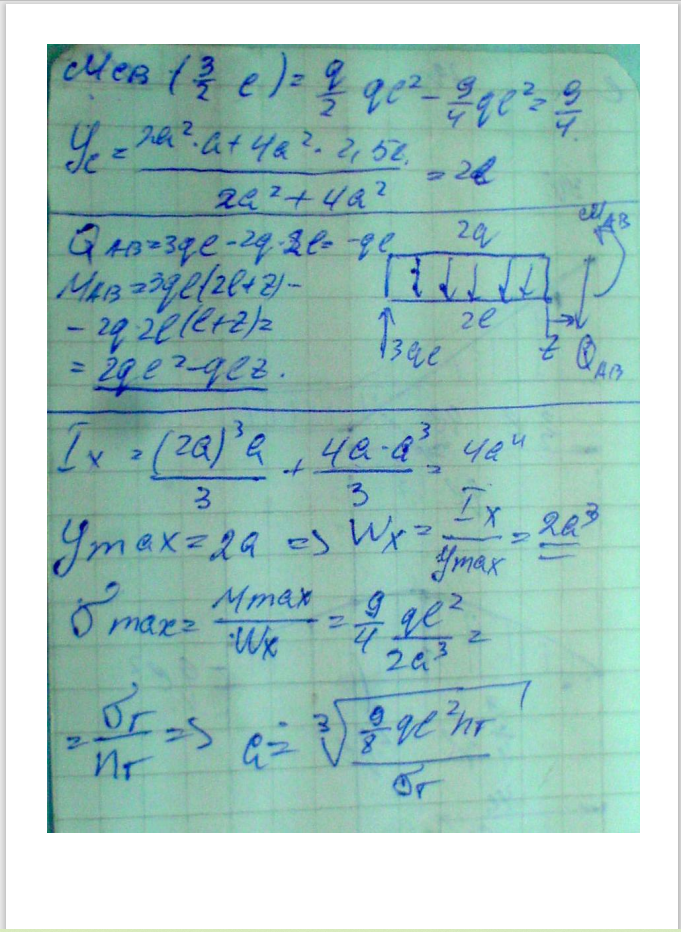 Mсв (3/2 e) = 9/2 qe² - 9/4 qe² = 9/4
Yc = (2a²·a + 4a²·2,5a) / (2a² + 4a²) = 2a
QAB = 3qe - 2q·2e = -qe
MAB = 3qe(2e+z) -
- 2q·2e(e+z) =
= 2qe² - qez.
2q
2e
3qe
z
MAB
QAB
Ix = (2a)³a / 3 + 4a·a³ / 3 = 4a⁴
Ymax = 2a => Wx = Ix / Ymax = 2a³
σmax = Mmax / Wx = 9/4 qe² / 2a³ =
= σт / nт => a = ∛(9/8 qe² nт / σт)